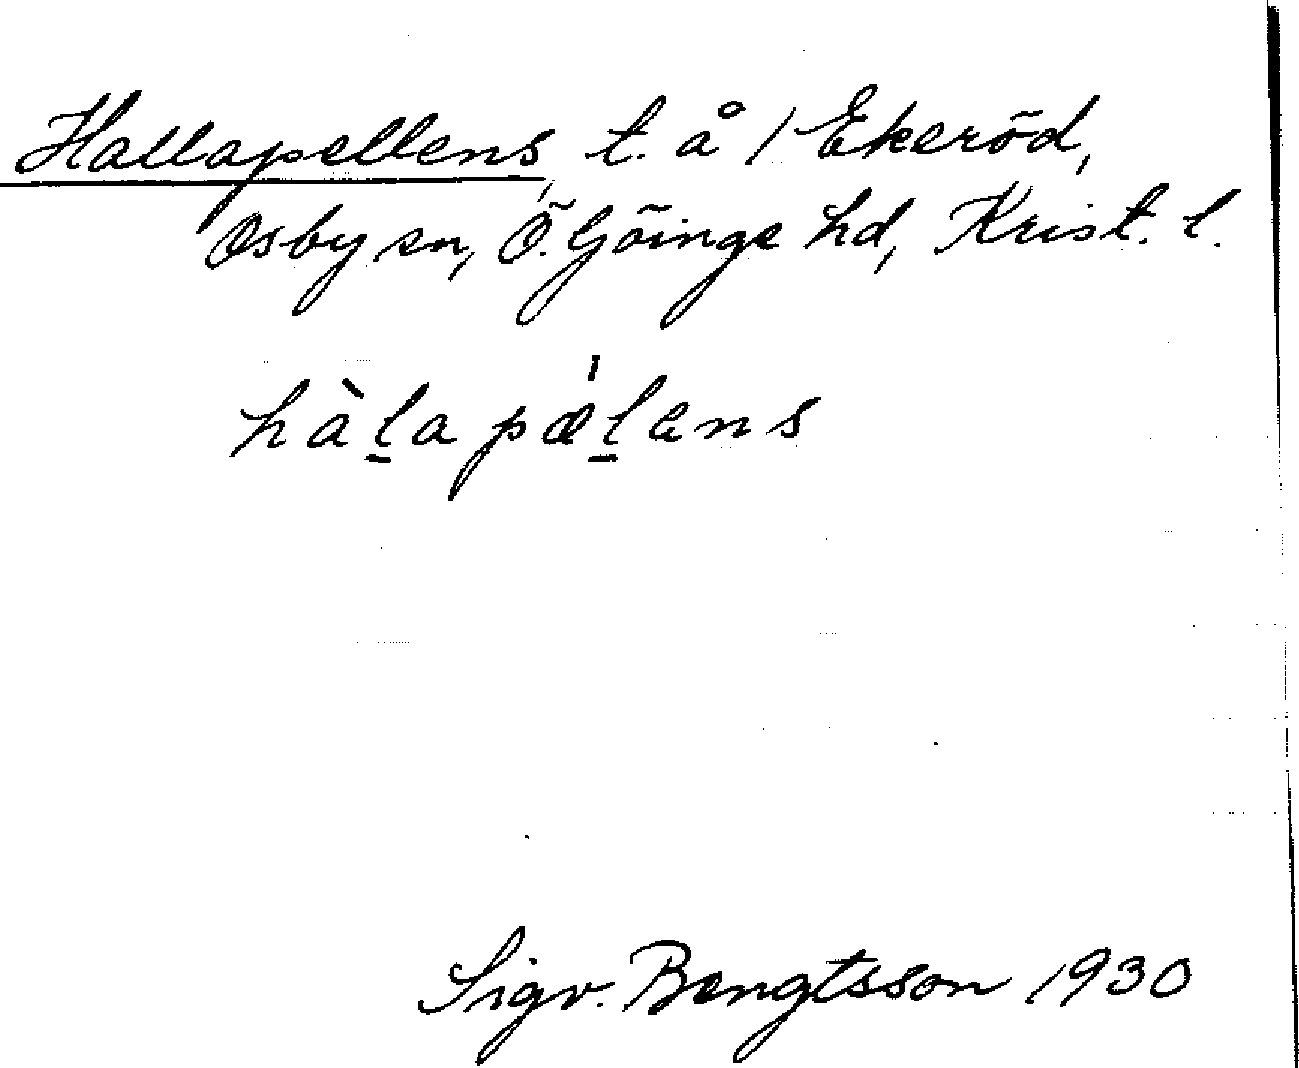 Hallapellens, t. å 1 Ekeröd,
Osby sn, Ö. Göinge hd, Krist. l.
hàl̠apæ̍l̠ens
Sigv. Bengtsson 1930